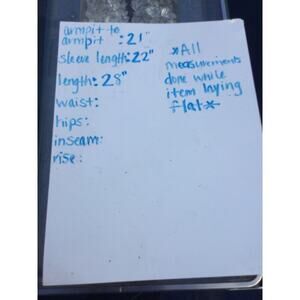 armpit to
armpit : 21"
sleeve length: 22"
length: 28"
waist:
hips:
inseam:
rise:
*All
measurements
done while
item laying
flat*